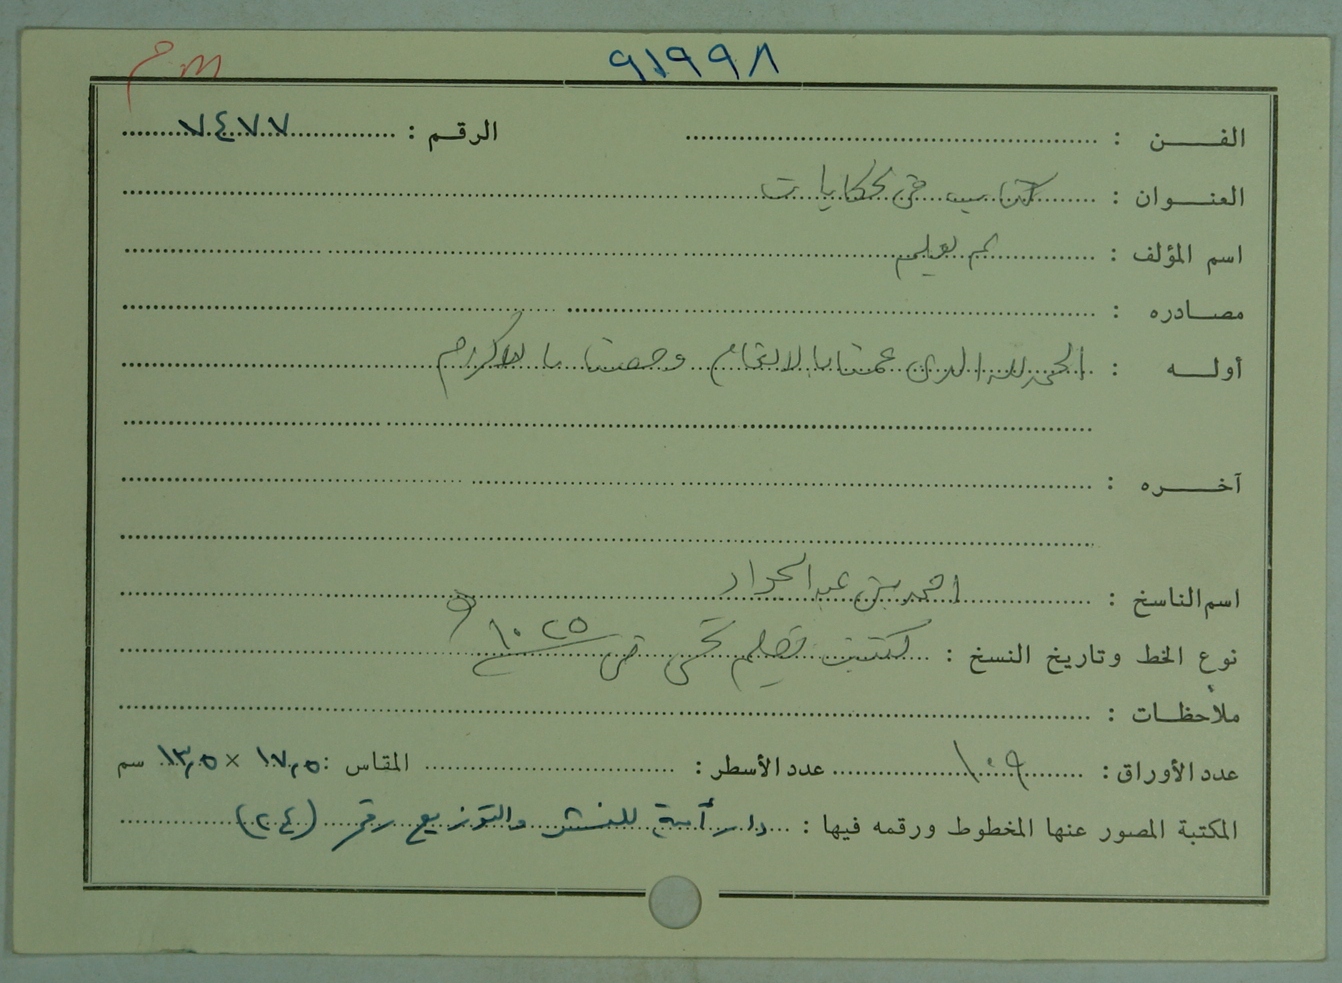 ٩١٩٩٨
الفــن : الرقـم : ٧٤٧٧
العنـوان : كتاب في حكايات
اسم المؤلف : لم يعلم
مصـادره :
أولـه : الحمد لله الذي عمنا بالانعام وخصنا بالاكرام
آخـره :
اسم الناسخ : احمد بن عبد الجواد
نوع الخط وتاريخ النسخ : كتبت بقلم نسخي في ١٠٢٥
ملاحظـات :
عدد الأوراق : ١٠٩ عدد الأسطر : المقاس : ١٧,٥ × ١٣,٥ سم
المكتبة المصور عنها المخطوط ورقمه فيها : دار أمية للنشر والتوزيع رقم (٢٤)